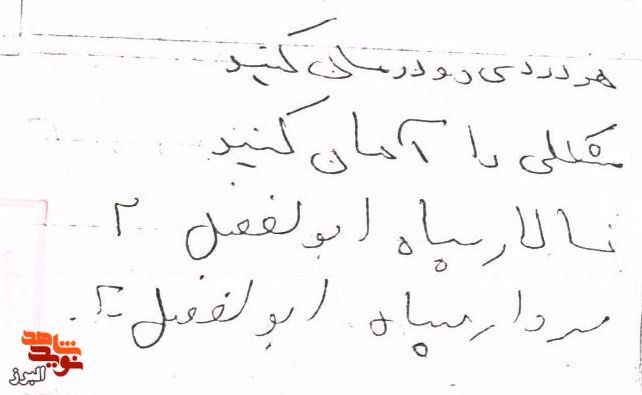 هر دردی رو درمان کنید
مشکلی را آسان کنید
سالار سپاه ابولفضل ۲
سردار سپاه ابولفضل ۲
نوید شاهد
البرز